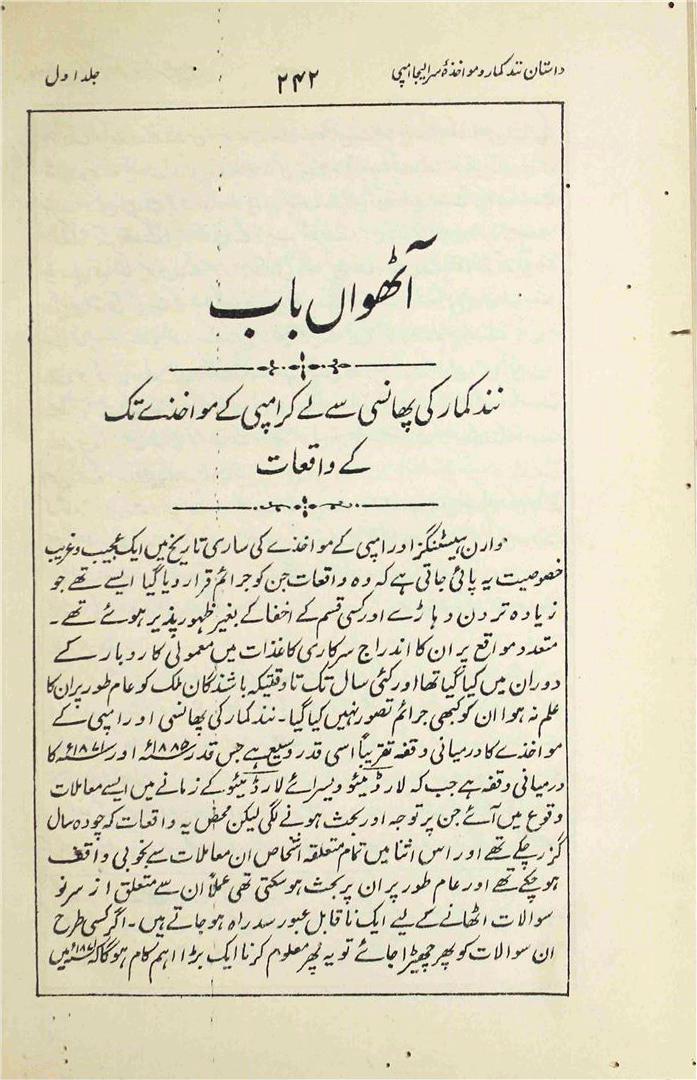 داستان نند کمار و مواخذۂ سر ایلیجا امپی ۲۴۲ جلد اول
آٹھواں باب
نند کمار کی پھانسی سے لے کر امپی کے مواخذے تک
کے واقعات
وارن ہیسٹنگز اور امپی کے مواخذے کی ساری تاریخ میں ایک عجیب و غریب
خصوصیت یہ پائی جاتی ہے کہ وہ واقعات جن کو جرائم قرار دیا گیا ایسے تھے جو
زیادہ تر دن دہاڑے اور کسی قسم کے اخفا کے بغیر ظہور پذیر ہوئے تھے۔
متعدد مواقع پر ان کا اندراج سرکاری کاغذات میں معمولی کاروبار کے
دوران میں کیا گیا تھا اور کئی سال تک تا وقتیکہ باشندگان ملک کو عام طور پر ان کا
علم نہ ہوا ان کو کبھی جرائم تصور نہیں کیا گیا۔ نند کمار کی پھانسی اور امپی کے
مواخذے کا درمیانی وقفہ تقریباً اسی قدر وسیع ہے جس قدر ۱۸۸۵ء اور ۱۸۷۱ء کا
درمیانی وقفہ ہے جب کہ لارڈ میئو ویسرائے لارڈ میئو کے زمانے میں ایسے معاملات
وقوع میں آئے جن پر توجہ اور بحث ہونے لگی لیکن محض یہ واقعات کہ چودہ سال
گزر چکے تھے اور اس اثنا میں تمام متعلقہ اشخاص ان معاملات سے بخوبی واقف
ہوچکے تھے اور عام طور پر ان پر بحث ہوسکتی تھی عملاً ان سے متعلق از سر نو
سوالات اٹھانے کے لیے ایک ناقابل عبور سد راہ ہو جاتے ہیں۔ اگر کسی طرح
ان سوالات کو پھر چھیڑا جائے تو یہ پھر معلوم کرنا ایک بڑا اہم کام ہوگا کہ ۱۸۷۱ء میں